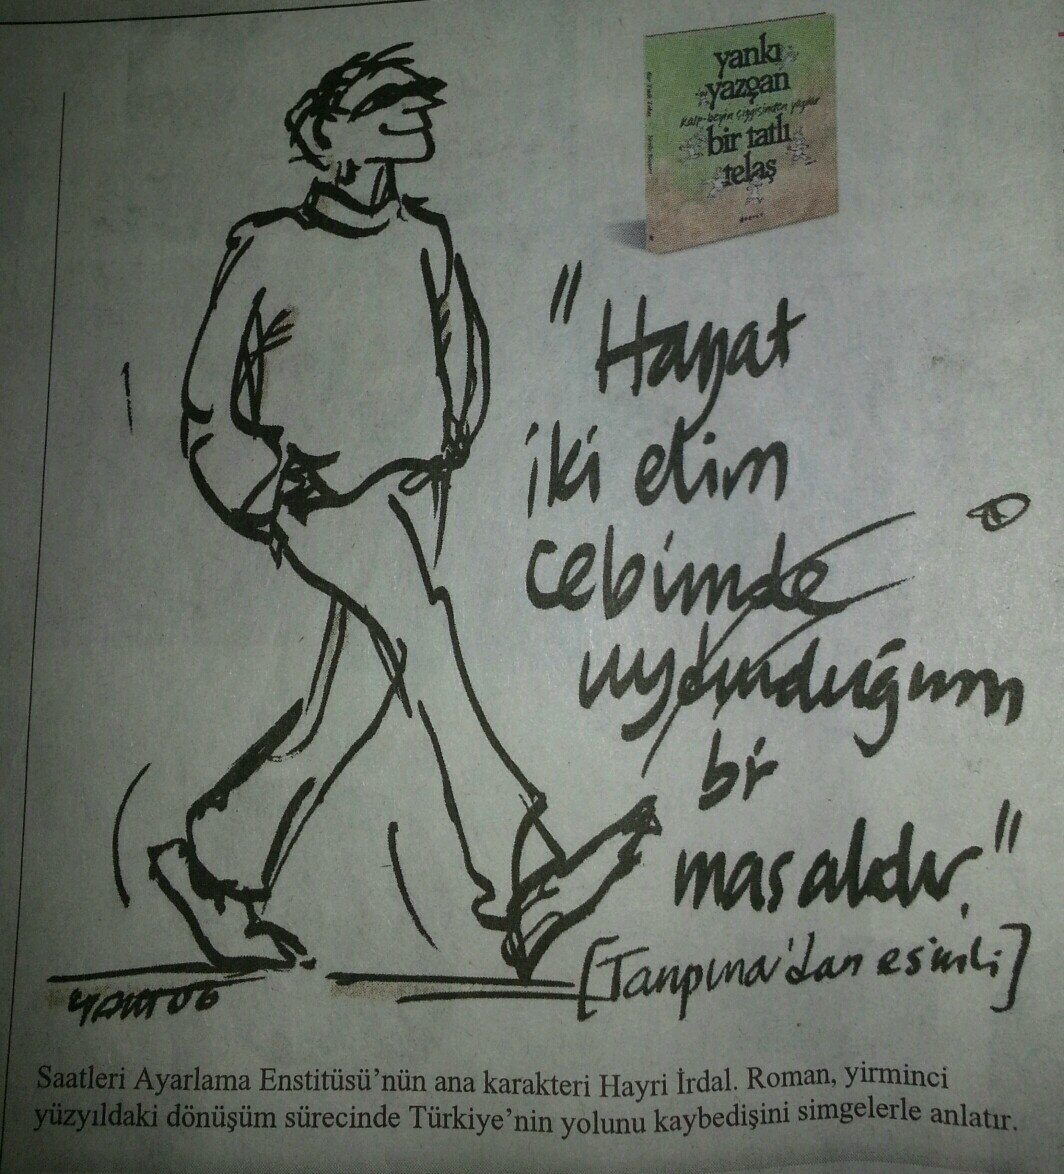 yankı
yazgan
kalp-beyin çizgisinden yazılar
bir tatlı
telaş
"Hayat
iki elim
cebimde
uydurduğum
bir
masaldır."
[Tanpınar'dan esinli]
Saatleri Ayarlama Enstitüsü'nün ana karakteri Hayri İrdal. Roman, yirminci
yüzyıldaki dönüşüm sürecinde Türkiye'nin yolunu kaybedişini simgelerle anlatır.